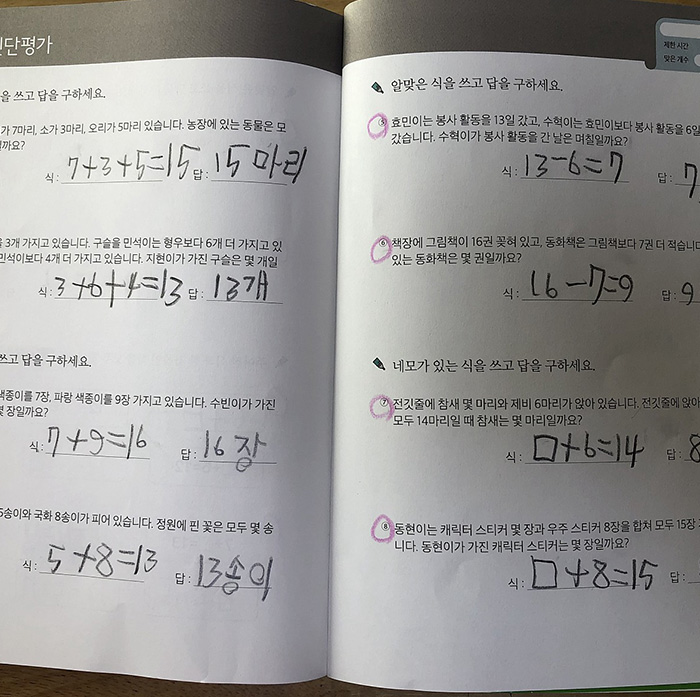 단평가
을 쓰고 답을 구하세요.
가 7마리, 소가 3마리, 오리가 5마리 있습니다. 농장에 있는 동물은 모
까요?
식: 7+3+5=15 답: 15마리
3개 가지고 있습니다. 구슬을 민석이는 형우보다 6개 더 가지고 있
민석이보다 4개 더 가지고 있습니다. 지현이가 가진 구슬은 몇 개일
식: 3+6+4=13 답: 13개
쓰고 답을 구하세요.
색종이를 7장, 파랑 색종이를 9장 가지고 있습니다. 수빈이가 가진
장일까요?
식: 7+9=16 답: 16장
5송이와 국화 8송이가 피어 있습니다. 정원에 핀 꽃은 모두 몇 송
식: 5+8=13 답: 13송이
제한 시간
맞은 개수
알맞은 식을 쓰고 답을 구하세요.
⑤ 효민이는 봉사 활동을 13일 갔고, 수혁이는 효민이보다 봉사 활동을 6일
갔습니다. 수혁이가 봉사 활동을 간 날은 며칠일까요?
식: 13-6=7 답: 7
⑥ 책장에 그림책이 16권 꽂혀 있고, 동화책은 그림책보다 7권 더 적습니다
있는 동화책은 몇 권일까요?
식: 16-7=9 답: 9
네모가 있는 식을 쓰고 답을 구하세요.
⑦ 전깃줄에 참새 몇 마리와 제비 6마리가 앉아 있습니다. 전깃줄에 앉아
모두 14마리일 때 참새는 몇 마리일까요?
식: □+6=14 답: 8
⑧ 동현이는 캐릭터 스티커 몇 장과 우주 스티커 8장을 합쳐 모두 15장
니다. 동현이가 가진 캐릭터 스티커는 몇 장일까요?
식: □+8=15 답: